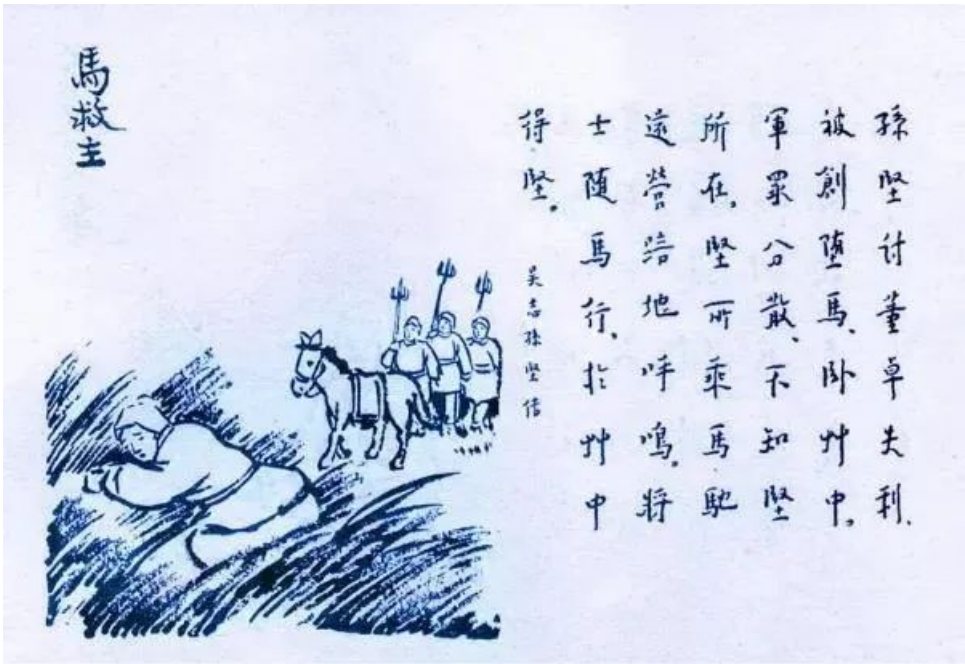 馬救主
孫堅討董卓失利、
被創堕馬、卧艸中。
軍眾分散、不知堅
所在。堅所乘馬馳
還營踣地呼鳴。將
士随馬行、於艸中
得堅。
吴志孫堅傳